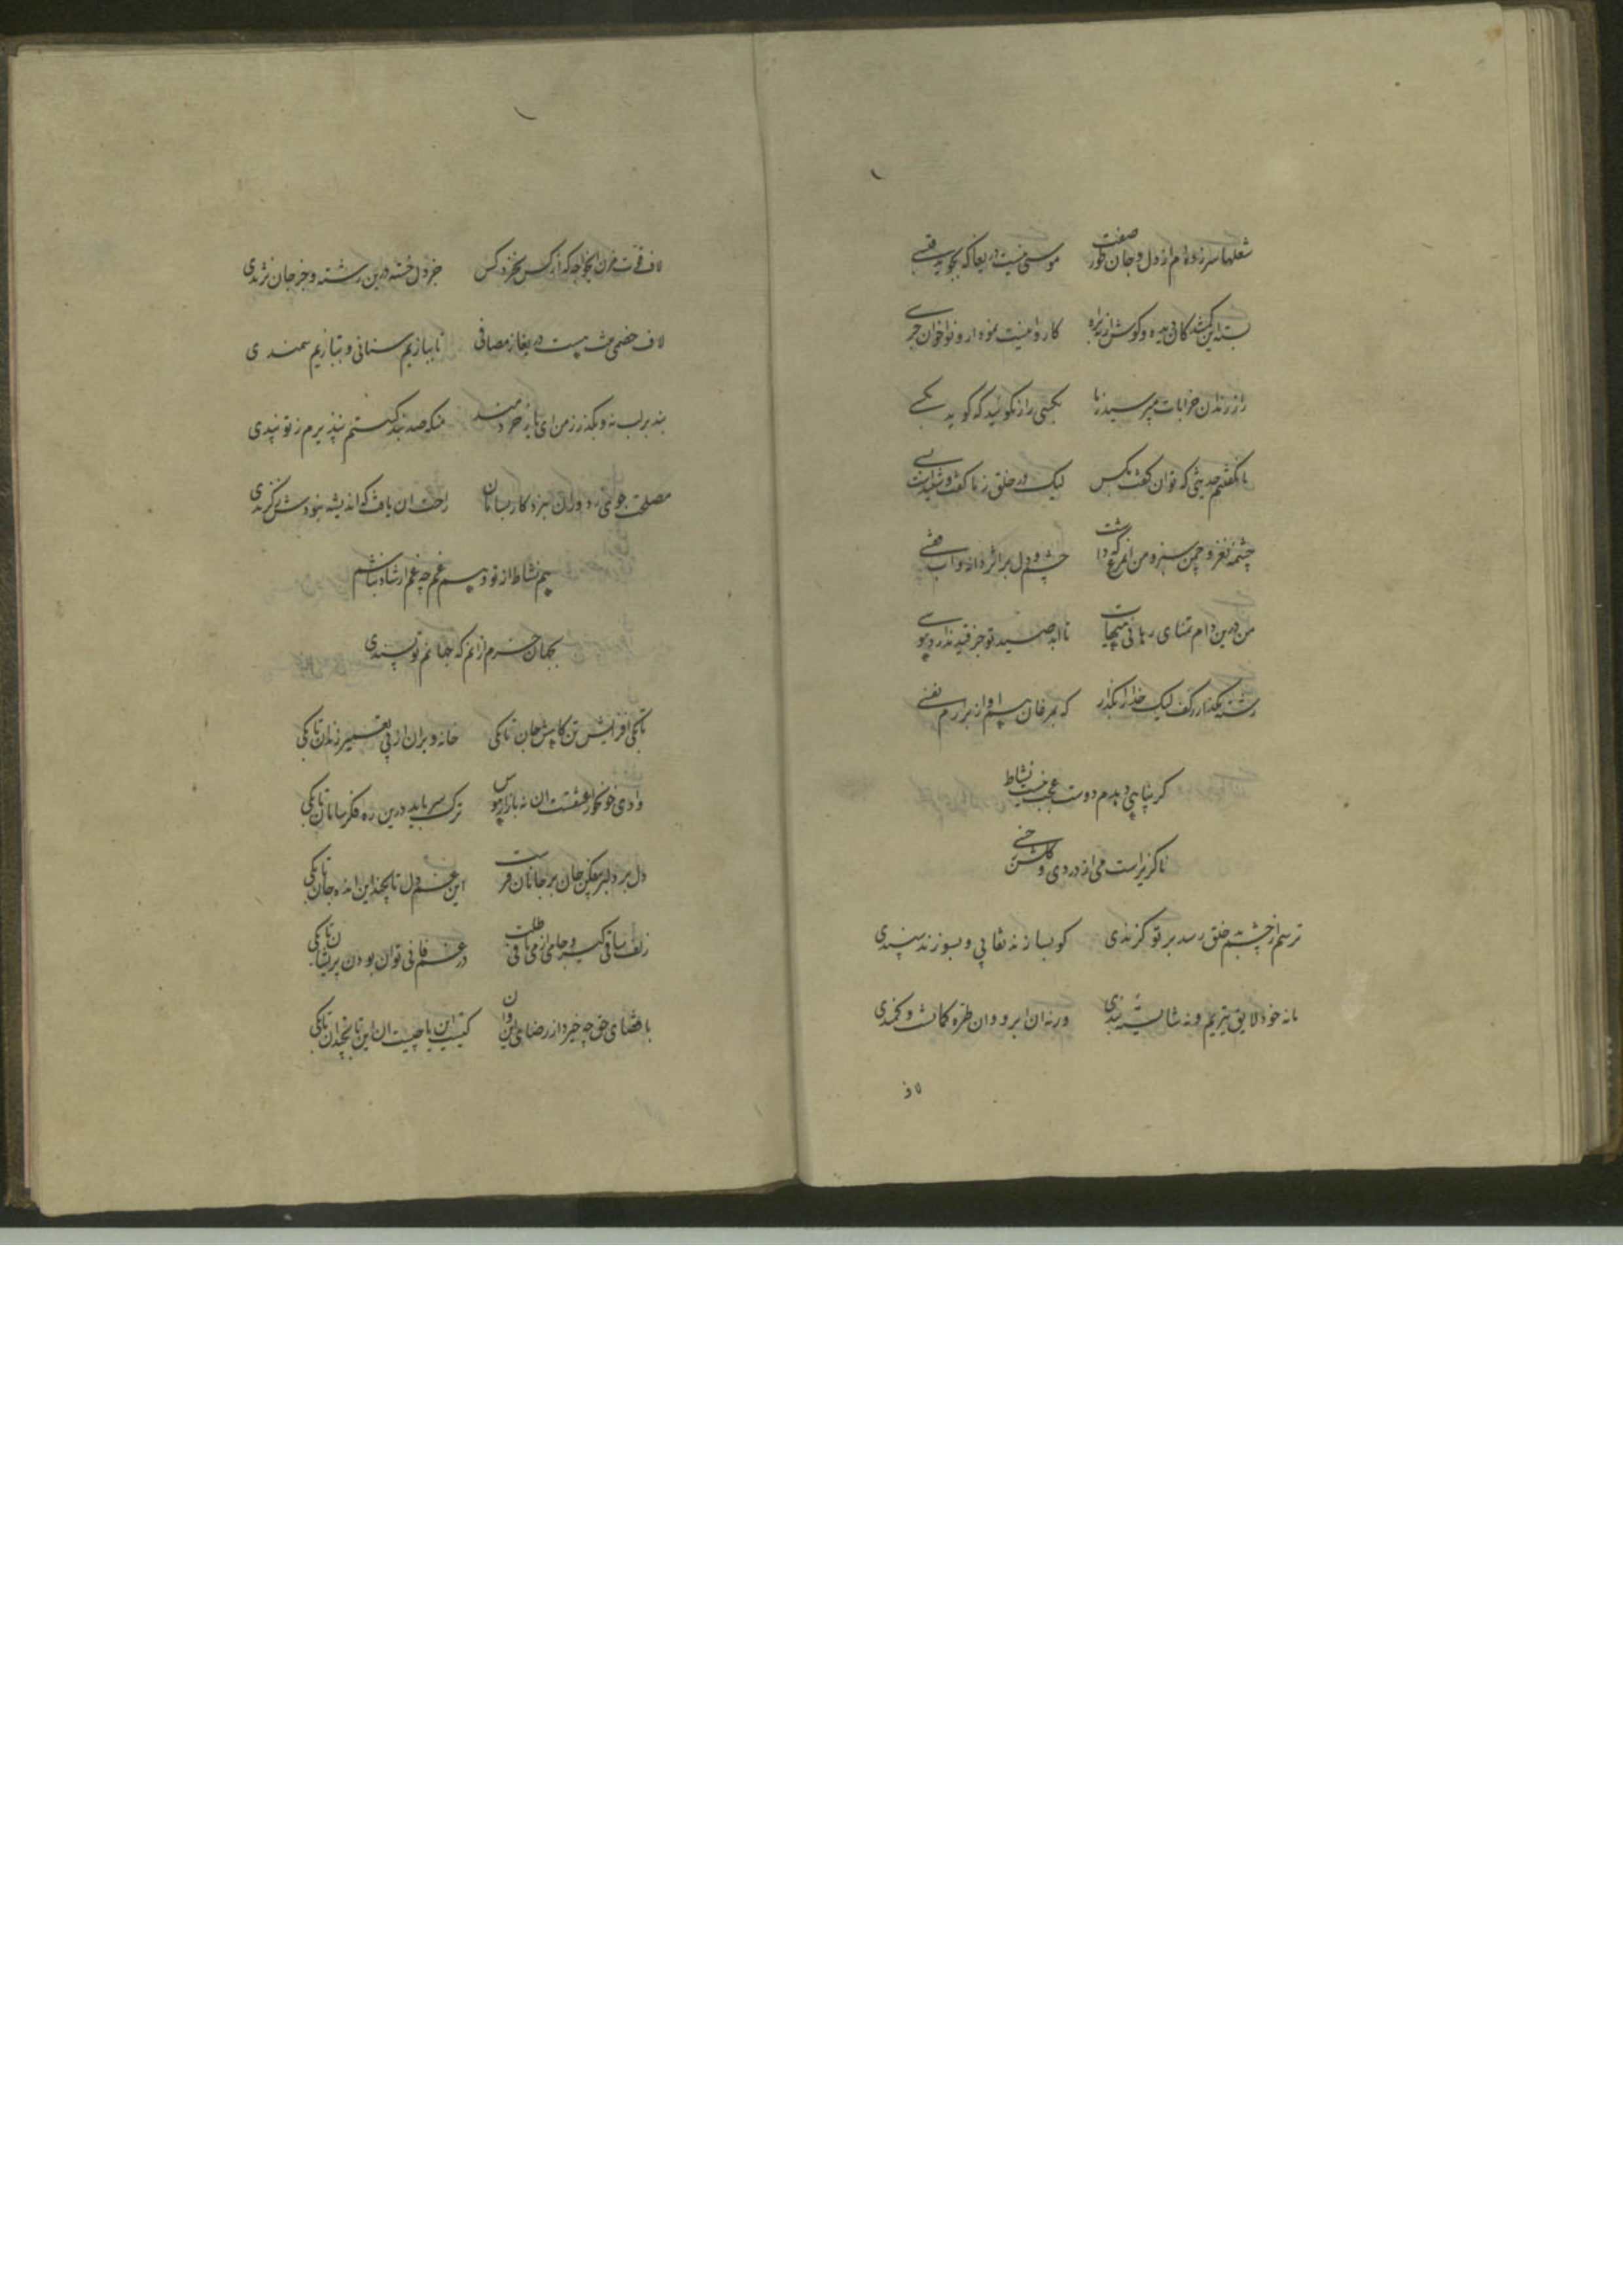 شعلها سر زده ام از دل و جان طور صفت موسئی نیست دریغا که بجوید قبسی
بسته این گمشدگان دیده و گوش ار نه براه کاروانیست نمودار و نواخوان جرسی
راز رندان خرابات مپرسید ز ما بکسی راز نگوئید که گوید بکسی
ما نگفتیم حدیثی که توان گفت بکس لیک در خلق ز ما گفت و شنیدست بسی
چشمه نغز و چمن سبز و من آنمرغ که داشت چشم و دل بر اثر دانه و آب قفسی
من درین دام تمنای رهائی هیهات تا ابد صید تو جز قید ندارد هوسی
رشته مگذار ز کف لیک خدا را بگذار که بمرغان هم آواز برآرم نفسی
گر بپائی دهدم دوست عجب نیست نشاط
ناگزیر است می از دردی و گلشن ز خسی
ترسم از چشم خلق رسد بر تو گزندی کو بسازند نقابی و بسوزند سپندی
ما نه خود لایق تیریم و نه شایسته بندی ورنه آن ابرو و آن طره کمانست و کمندی
لاف
لاف قوت مزن ایخواجه که از کس نخرد کس جز دل خسته درین رشته و جز جان نژندی
لاف خصمی مست دریغا ز مصافی تا ببازیم سنانی و بتازیم سمندی
بند بر لب نه و بگذر ز من ای یار خردمند منکه صد بند گسستم نپذیرم ز تو پندی
مصلحت جوئی دوران نبرد کار بسامان راحت آن یافت که اندیشه نبودش ز گزندی
هم نشاط از تو و هم غم چه غم ار شاد نباشم
بجهان خرم از انم که جهانم تو پسندی
تا بکی افزایش تن کاهش جان تا بکی خانه ویران از پی تعمیر زندان تا بکی
وادی خونخوار عشقست آن نه بازار هوس ترک سر باید درین ره فکر سامان تا بکی
دل بر دلبر مقیم جان بر جانان قرست این غم دل تا بچند این انده جان تا بکی
زلف ساقی گیر و جامی از می باقی طلب در غم فانی توان بودن پریشان تا بکی
با قضای حق چه خیزد از رضای این و آن کیست این یا چیست آن این تا بچند آن تا بکی